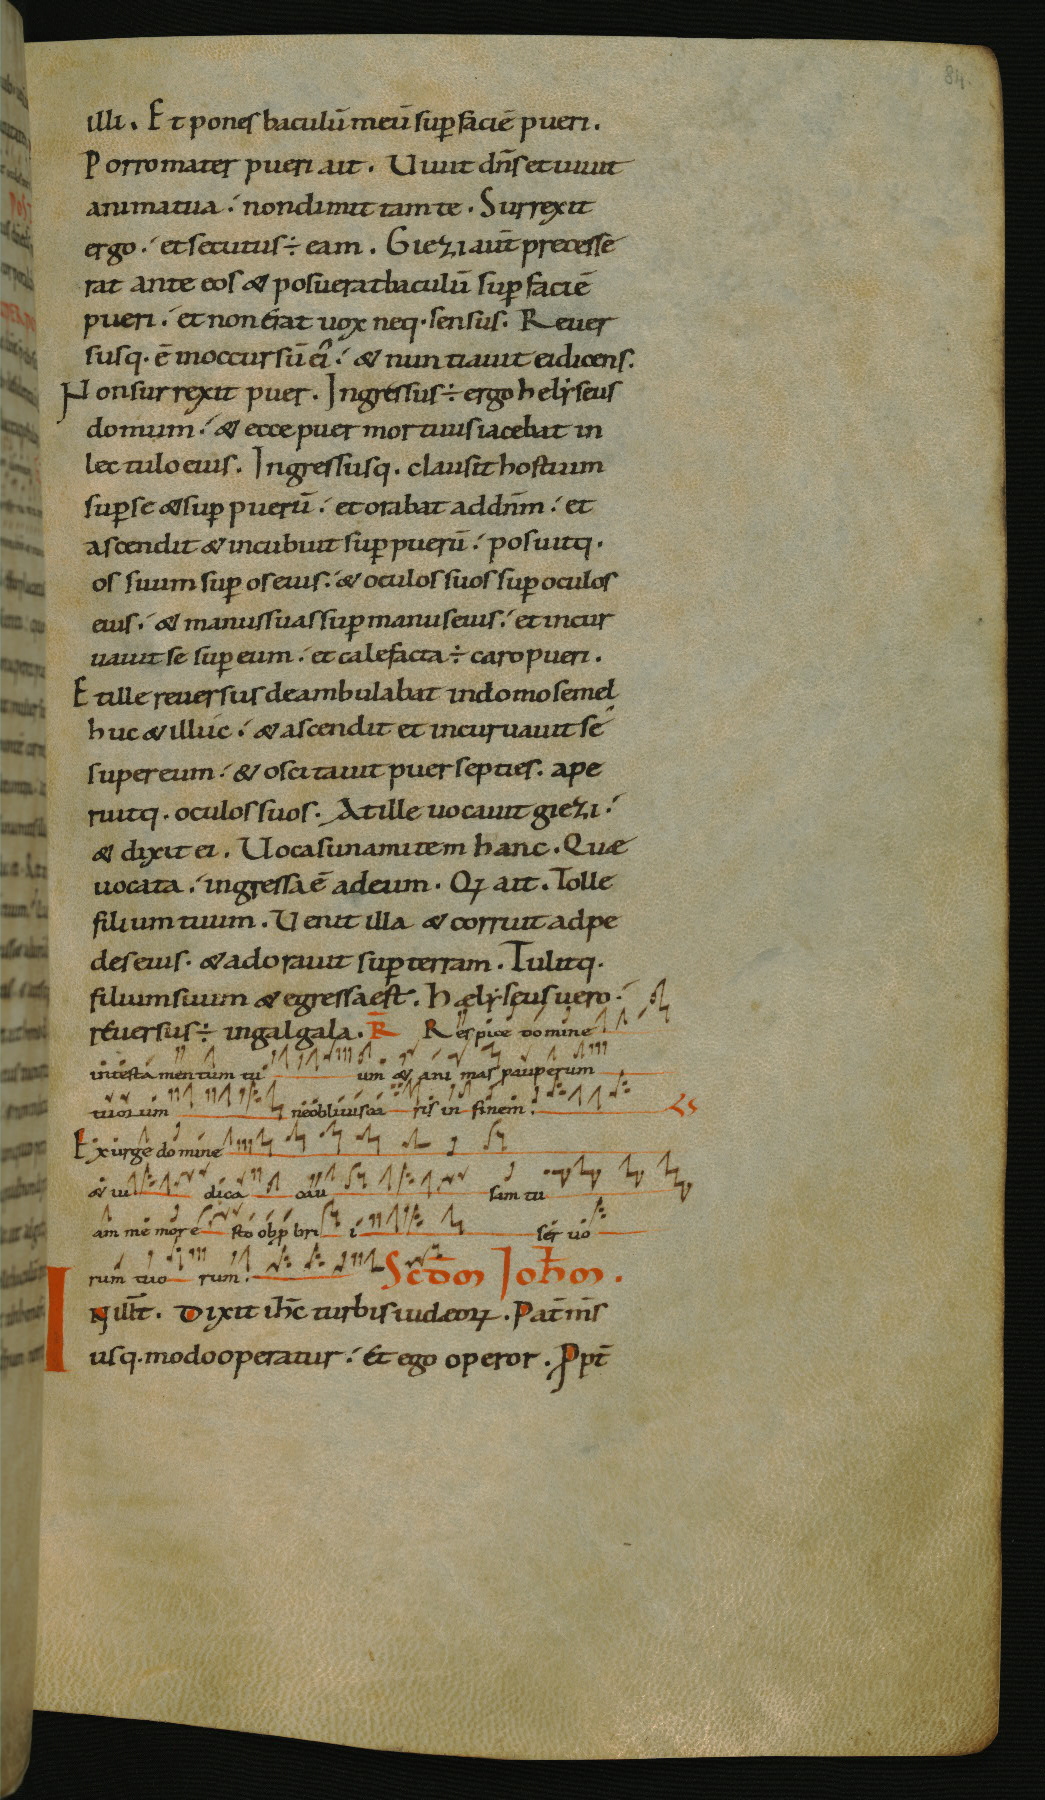 84.
illi. Et pones baculū meū sup faciē pueri.
Porro mater pueri ait. Uiuit dn̄s et uiuit
anima tua. non dimittam te. Surrexit
ergo. et secutus ÷ eam. Giezi aut̄ precesse
rat ante eos & posuerat baculū sup faciē
pueri. et non erat uox neq. sensus. Reuer
susq. ē in occursū ei. & nuntiauit ei dicens.
Non surrexit puer. Ingressus ÷ ergo helyseus
domum. & ecce puer mortuus iacebat in
lectulo eius. Ingressusq. clausit hostium
sup se & sup puerū. et orabat ad dn̄m. et
ascendit & incubuit sup puerū. posuitq.
os suum sup os eius. & oculos suos sup oculos
eius. & manus suas sup manus eius. et incur
uauit se sup eum. et calefacta ÷ caro pueri.
Et ille reuersus deambulabat in domo semel
huc & illuc. & ascendit et incuruauit se
super eum. & oscitauit puer septies. ape
ruitq. oculos suos. At ille uocauit giezi.
& dixit ei. Uoca sunamitem hanc. Quæ
uocata. ingressa ē ad eum. Qꝫ ait. Tolle
filium tuum. Uenit illa & corruit ad pe
des eius. & adorauit sup terram. Tulitq.
filium suum & egressa est. Hælyseus uero.
reuersus ÷ in galgala. R̄ Respice domine
in testamentum tuum & animas pauperum
tuorum ne obliuiscaris in finem.
Exurge domine
& iudica causam tu
am memor esto obp̄brii seruo
rum tuorum. Scd̄m Johm̄.
In ill̄t. Dixit ih̄c turbis iudæoꝝ. Pat̄ m̄s
usq. modo operatur. Et ego operor. Ppt̄